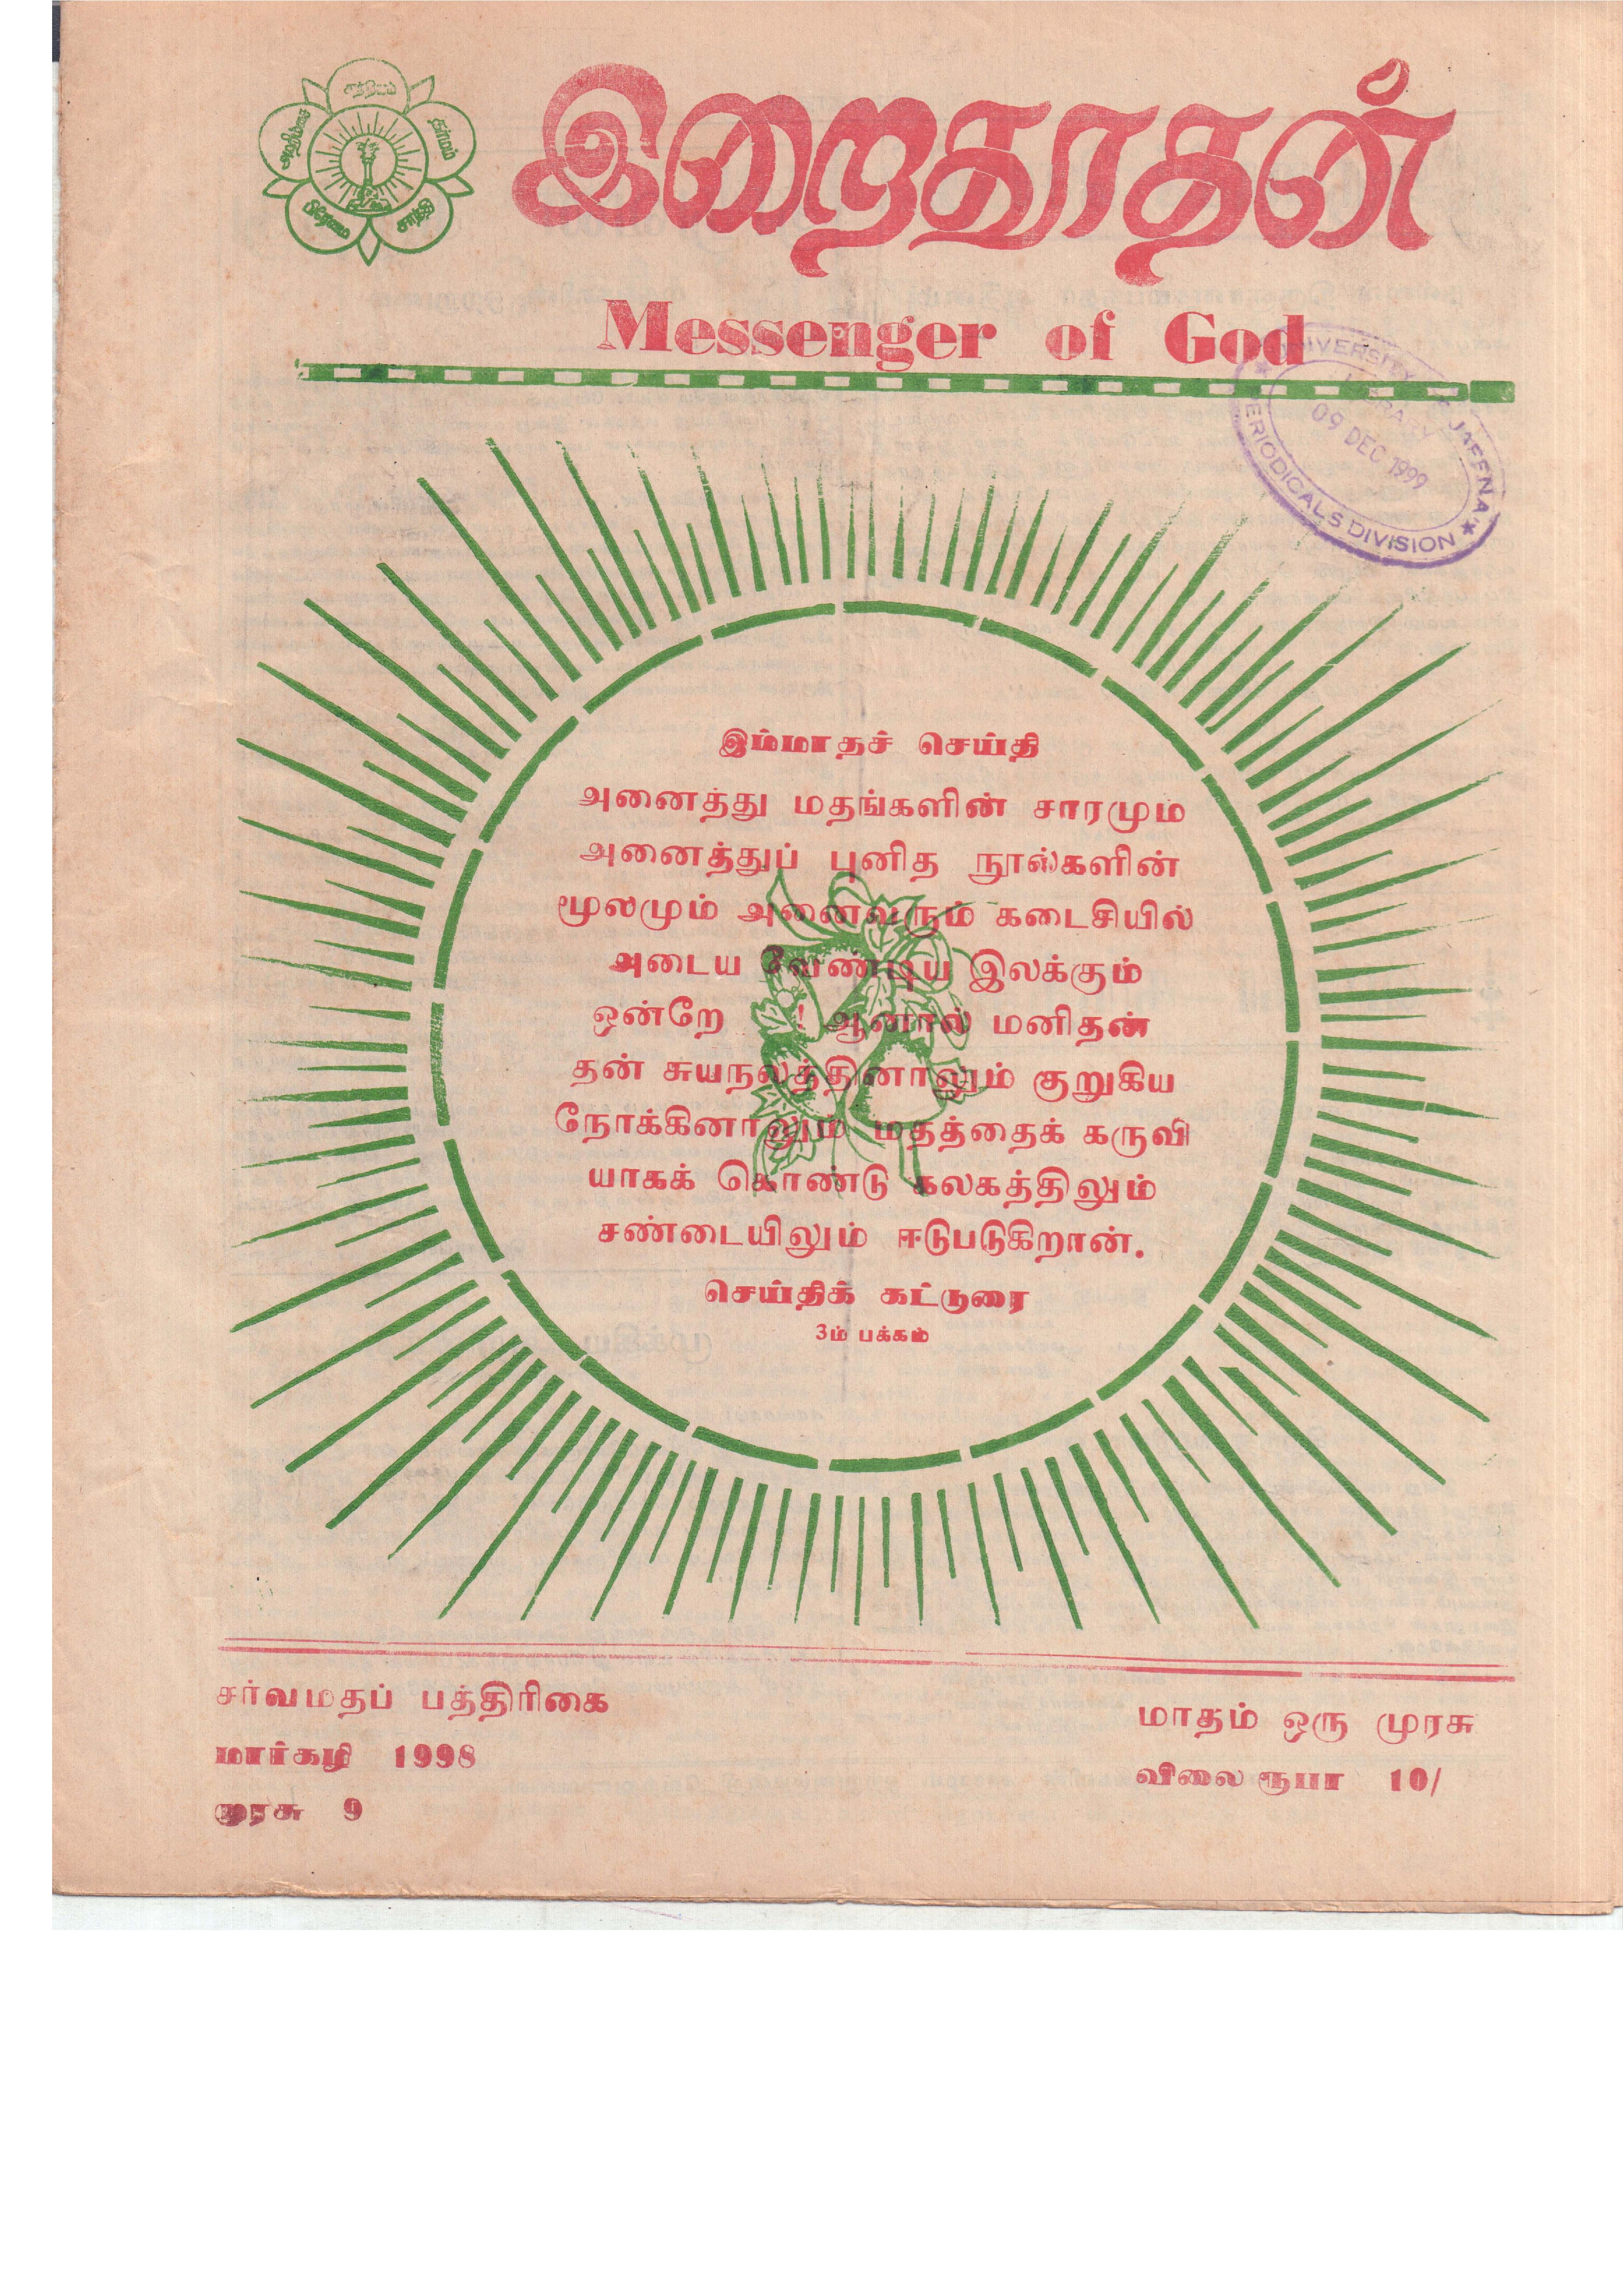 சத்தியம்
தர்மம்
சாந்தி
பிரேமை
அகிம்சை
இறைதூதன்
Messenger of God
UNIVERSITY OF JAFFNA
LIBRARY
09 DEC 1999
PERIODICALS DIVISION
இம்மாதச் செய்தி
அனைத்து மதங்களின் சாரமும்
அனைத்துப் புனித நூல்களின்
மூலமும் அனைவரும் கடைசியில்
அடைய வேண்டிய இலக்கும்
ஒன்றே ! ஆனால் மனிதன்
தன் சுயநலத்தினாலும் குறுகிய
நோக்கினாலும் மதத்தைக் கருவி
யாகக் கொண்டு கலகத்திலும்
சண்டையிலும் ஈடுபடுகிறான்.
செய்திக் கட்டுரை
3ம் பக்கம்
சர்வமதப் பத்திரிகை
மார்கழி 1998
முரசு 9
மாதம் ஒரு முரசு
விலை ரூபா 10/